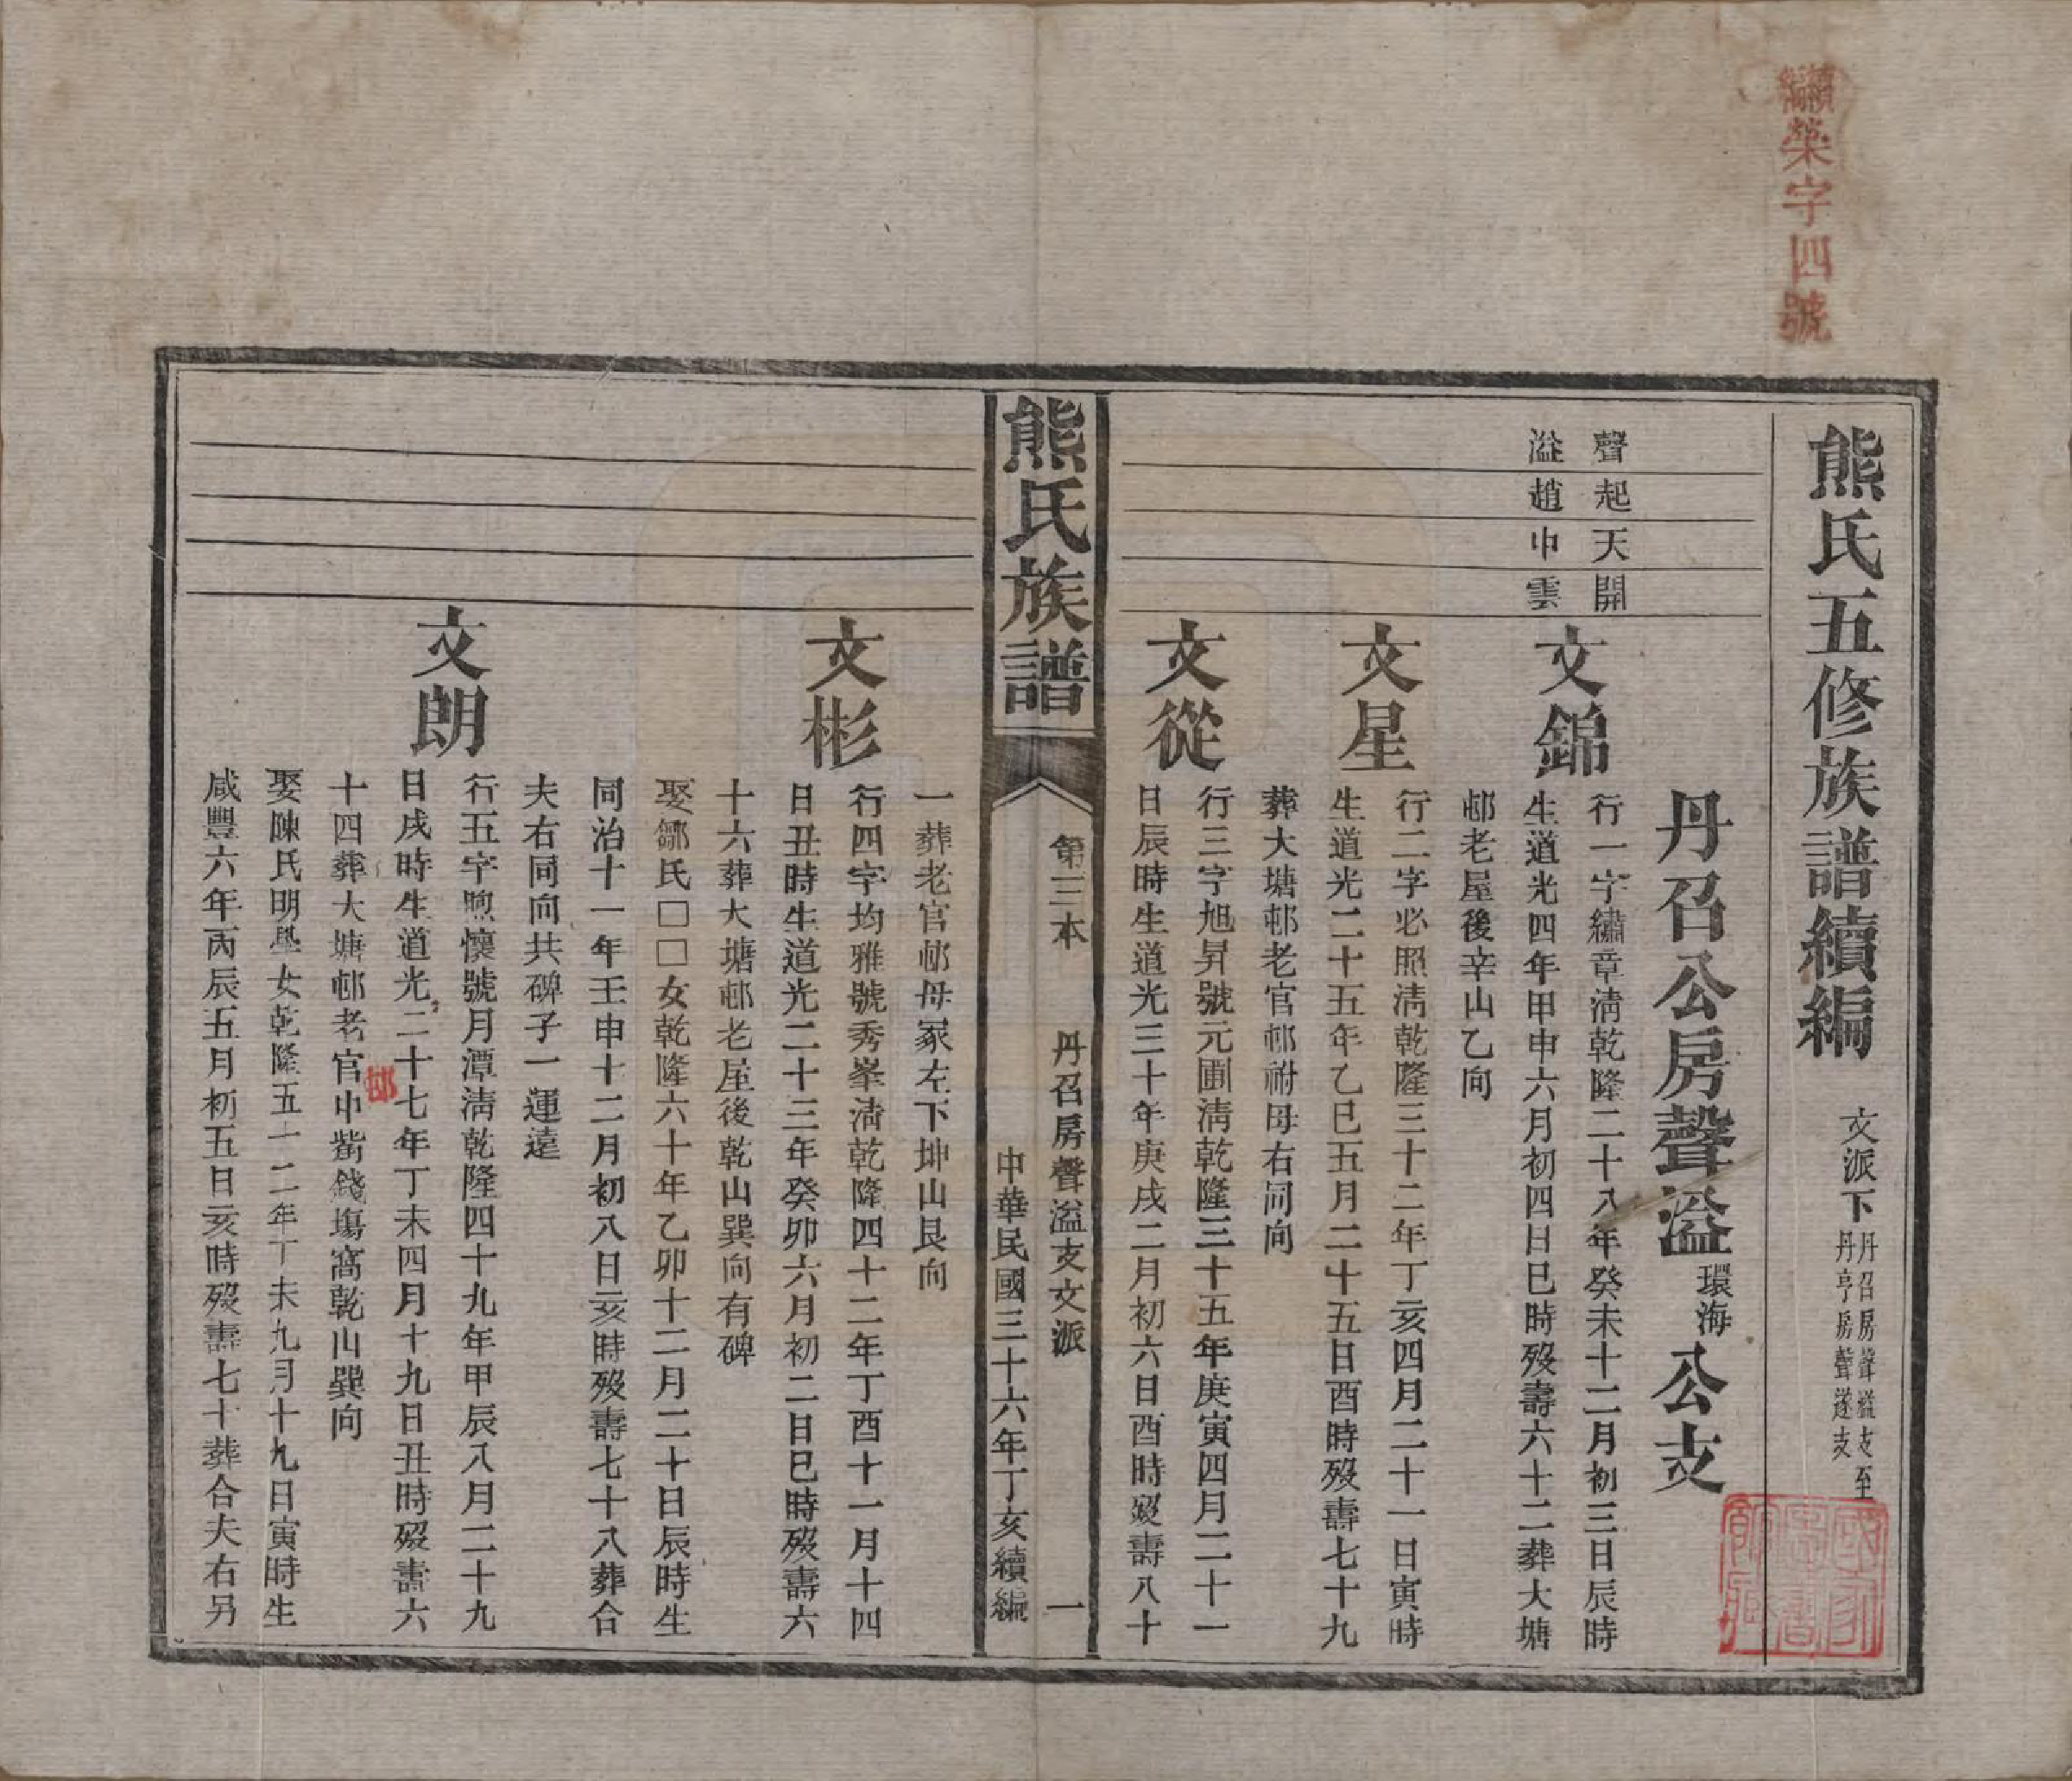 續編榮字四號
熊氏五修族譜續編
文派下
丹召房聲溢支至
丹亨房聲遂支
丹召公房聲溢環海公支
聲起天開
溢趙中雲
文錦
行一字繡章淸乾隆二十八年癸未十二月初三日辰時
生道光四年甲申六月初四日巳時歿壽六十二葬大塘
邨老屋後辛山乙向
文星
行二字必照淸乾隆三十二年丁亥四月二十一日寅時
生道光二十五年乙巳五月二十五日酉時歿壽七十九
葬大塘邨老官邨祔母右同向
文從
行三字旭昇號元圃淸乾隆三十五年庚寅四月二十一
日辰時生道光三十年庚戌二月初六日酉時歿壽八十
熊氏族譜
第三本
丹召房聲溢支文派
一
中華民國三十六年丁亥續編
一葬老官邨母冢左下坤山艮向
文彬
行四字均雅號秀峯淸乾隆四十二年丁酉十一月十四
日丑時生道光二十三年癸卯六月初二日巳時歿壽六
十六葬大塘邨老屋後乾山巽向有碑
娶鄒氏□□女乾隆六十年乙卯十二月二十日辰時生
同治十一年壬申十二月初八日亥時歿壽七十八葬合
夫右同向共碑子一運遠
文朗
行五字煦懷號月潭淸乾隆四十九年甲辰八月二十九
日戌時生道光二十七年丁未四月十九日丑時歿壽六
十四葬大塘邨老官邨中觜錢塲窩乾山巽向
娶陳氏明學女乾隆五十二年丁未九月十九日寅時生
咸豐六年丙辰五月初五日亥時歿壽七十葬合夫右另